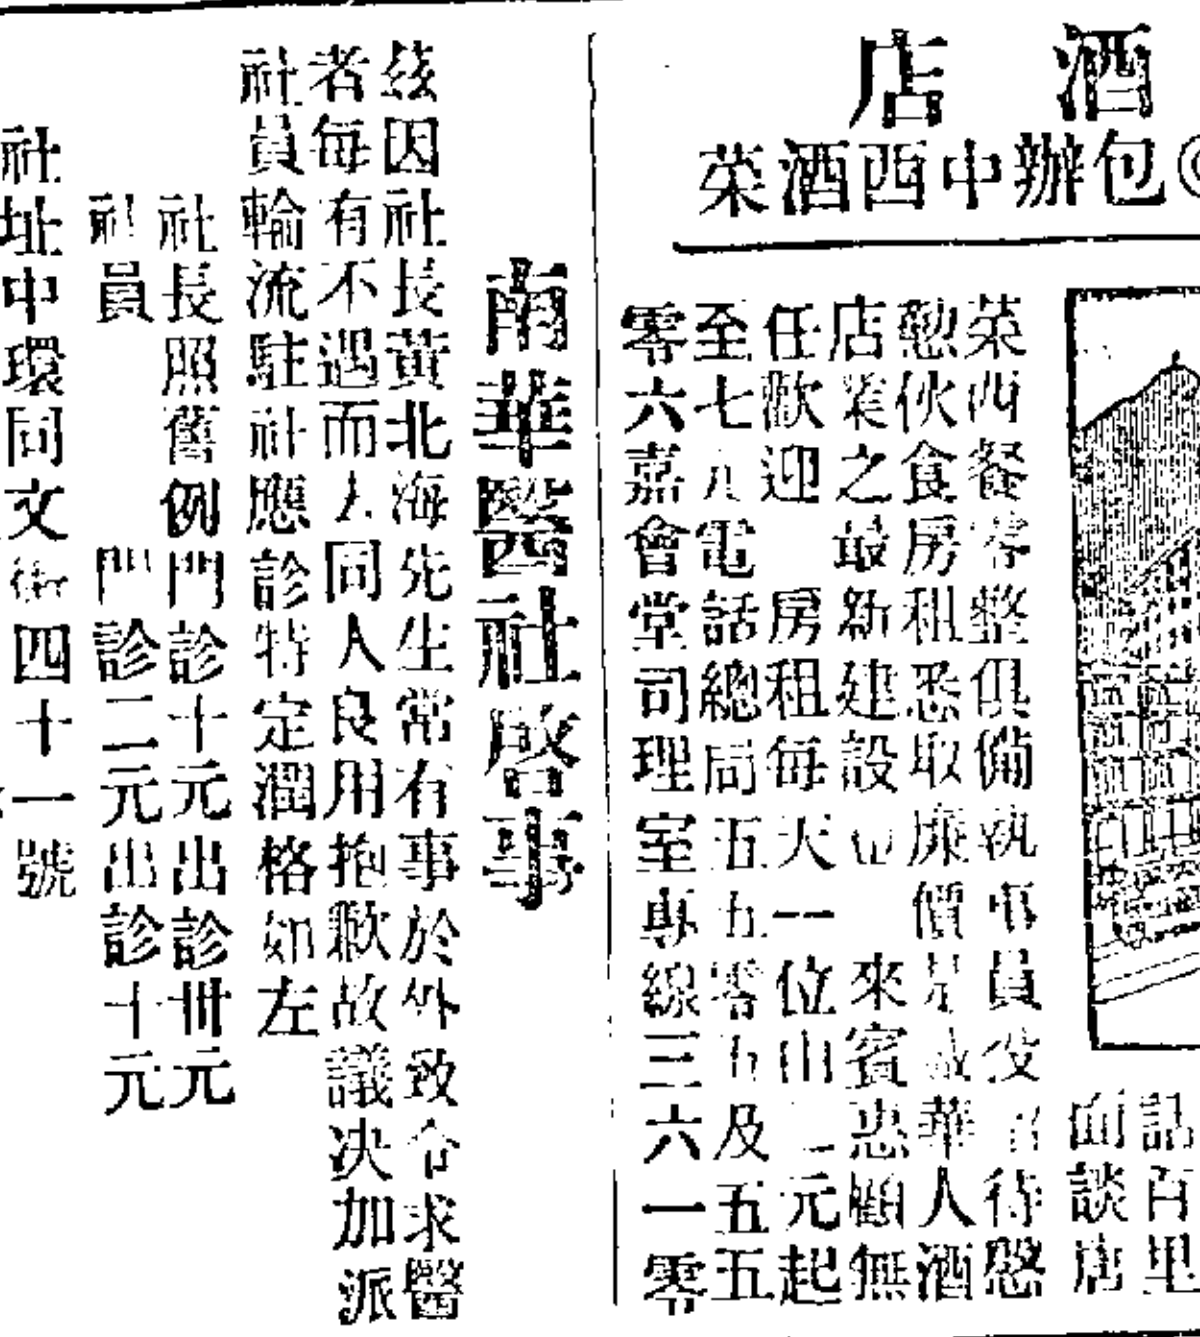 酒店
包辦中西酒菜
話百里
面談唐
菜西餐零整俱備執事員役招待慇
懃伙食房租悉取廉價是誠華人酒
店業之最新建設也 來賓惠顧無
任歡迎 房租每天一位由二元起
至七元電話總局五五零五及五五
零六嘉會堂司理室專線三六一零
南華醫社啓事
茲因社長黃北海先生常有事於外致令求醫
者每有不遇而去同人良用抱歉故議决加派
社員輪流駐社應診特定潤格如左
社長照舊例門診十元出診卅元
社員 門診二元出診十元
社址中環同文街四十一號